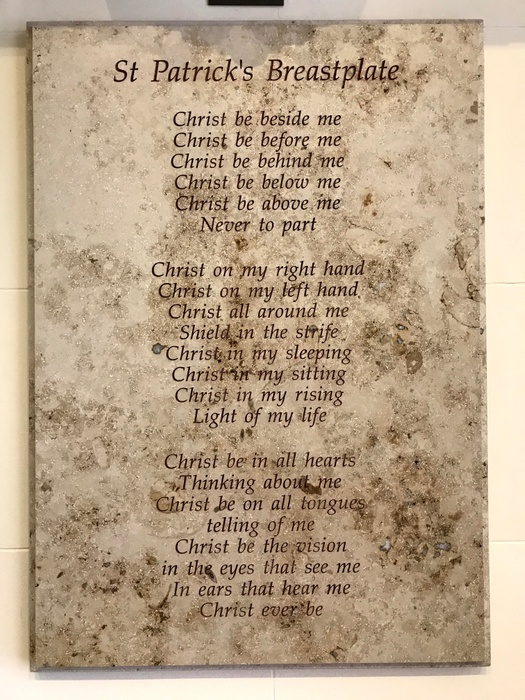 St Patrick's Breastplate
Christ be beside me
Christ be before me
Christ be behind me
Christ be below me
Christ be above me
Never to part
Christ on my right hand
Christ on my left hand
Christ all around me
Shield in the strife
Christ in my sleeping
Christ in my sitting
Christ in my rising
Light of my life
Christ be in all hearts
Thinking about me
Christ be on all tongues
telling of me
Christ be the vision
in the eyes that see me
In ears that hear me
Christ ever be